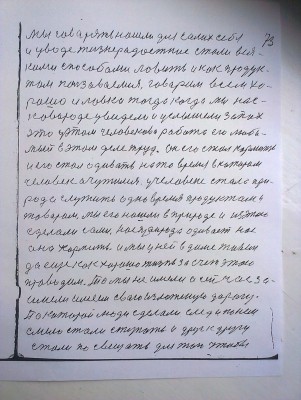 73
мы товар это нашли для самих себя
и уводе жизнерадостние стали вся-
кими способами ловить и как продук-
том показавения, говорим всем хо-
рошо и ловко тогда когда мы нас-
ковороде увидели и услышели запах
это у этом человекова работа его люби-
мый в этом деле труд. Он его стал кормить
и его стал одивать на то время в котором
человек очутился. у человека стало при-
рода служить одно время продуктом а
товаром, мы его нашли в природе и из этого
сделали сами, нас природа одивает нас
она кормить и мы у ней в доме живем
да еще как хорошо жизнь за счет этого
проводим. То мы не имели а сейчас за-
имели имеем своего железную дорогу.
По которой люди сделали следи по ней
смело стали ступать и друг к другу
стали по свещать для того чтобы